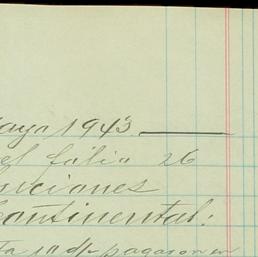 Mayo 1943
el fólio 26
siciones
Continental:
ta 10 d/- pagason en